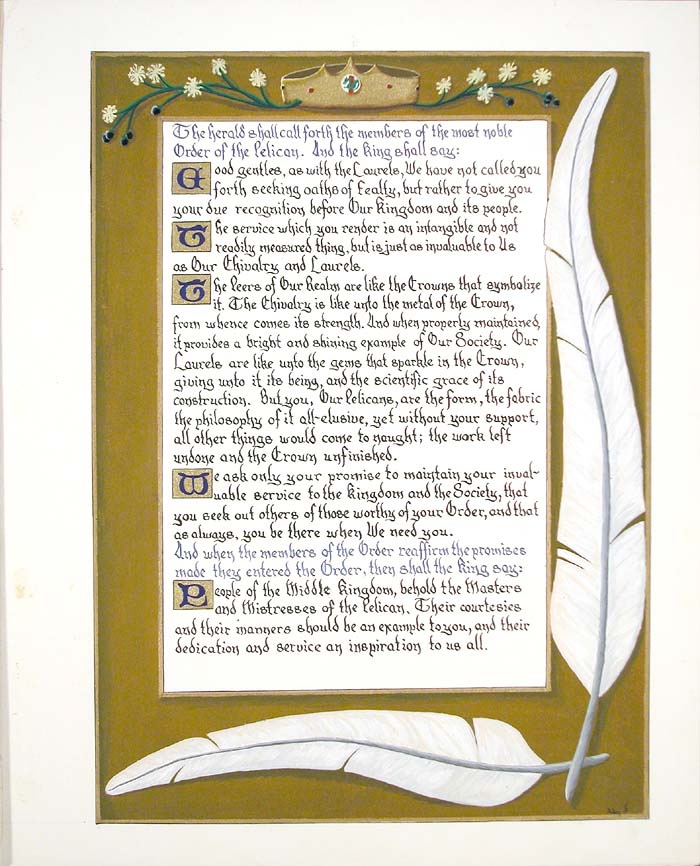 The herald shall call forth the members of the most noble
Order of the Pelican. And the King shall say:
Good gentles, as with the Laurels, We have not called you
forth seeking oaths of fealty, but rather to give you
your due recognition before Our Kingdom and its people.
The service which you render is an intangible and not
readily measured thing, but is just as invaluable to Us
as Our Chivalry and Laurels.
The Peers of Our Realm are like the Crowns that symbolize
it. The Chivalry is like unto the metal of the Crown,
from whence comes its strength. And when properly maintained,
it provides a bright and shining example of Our Society. Our
Laurels are like unto the gems that sparkle in the Crown,
giving unto it its being, and the scientific grace of its
construction. But you, Our Pelicans, are the form, the fabric
the philosophy of it all-elusive, yet without your support,
all other things would come to naught; the work left
undone and the Crown unfinished.
We ask only your promise to maintain your inval-
uable service to the Kingdom and the Society, that
you seek out others of those worthy of your Order, and that
as always, you be there when We need you.
And when the members of the Order reaffirm the promises
made they entered the Order, then shall the King say:
People of the Middle Kingdom, behold the Masters
and Mistresses of the Pelican. Their courtesies
and their manners should be an example to you, and their
dedication and service an inspiration to us all.